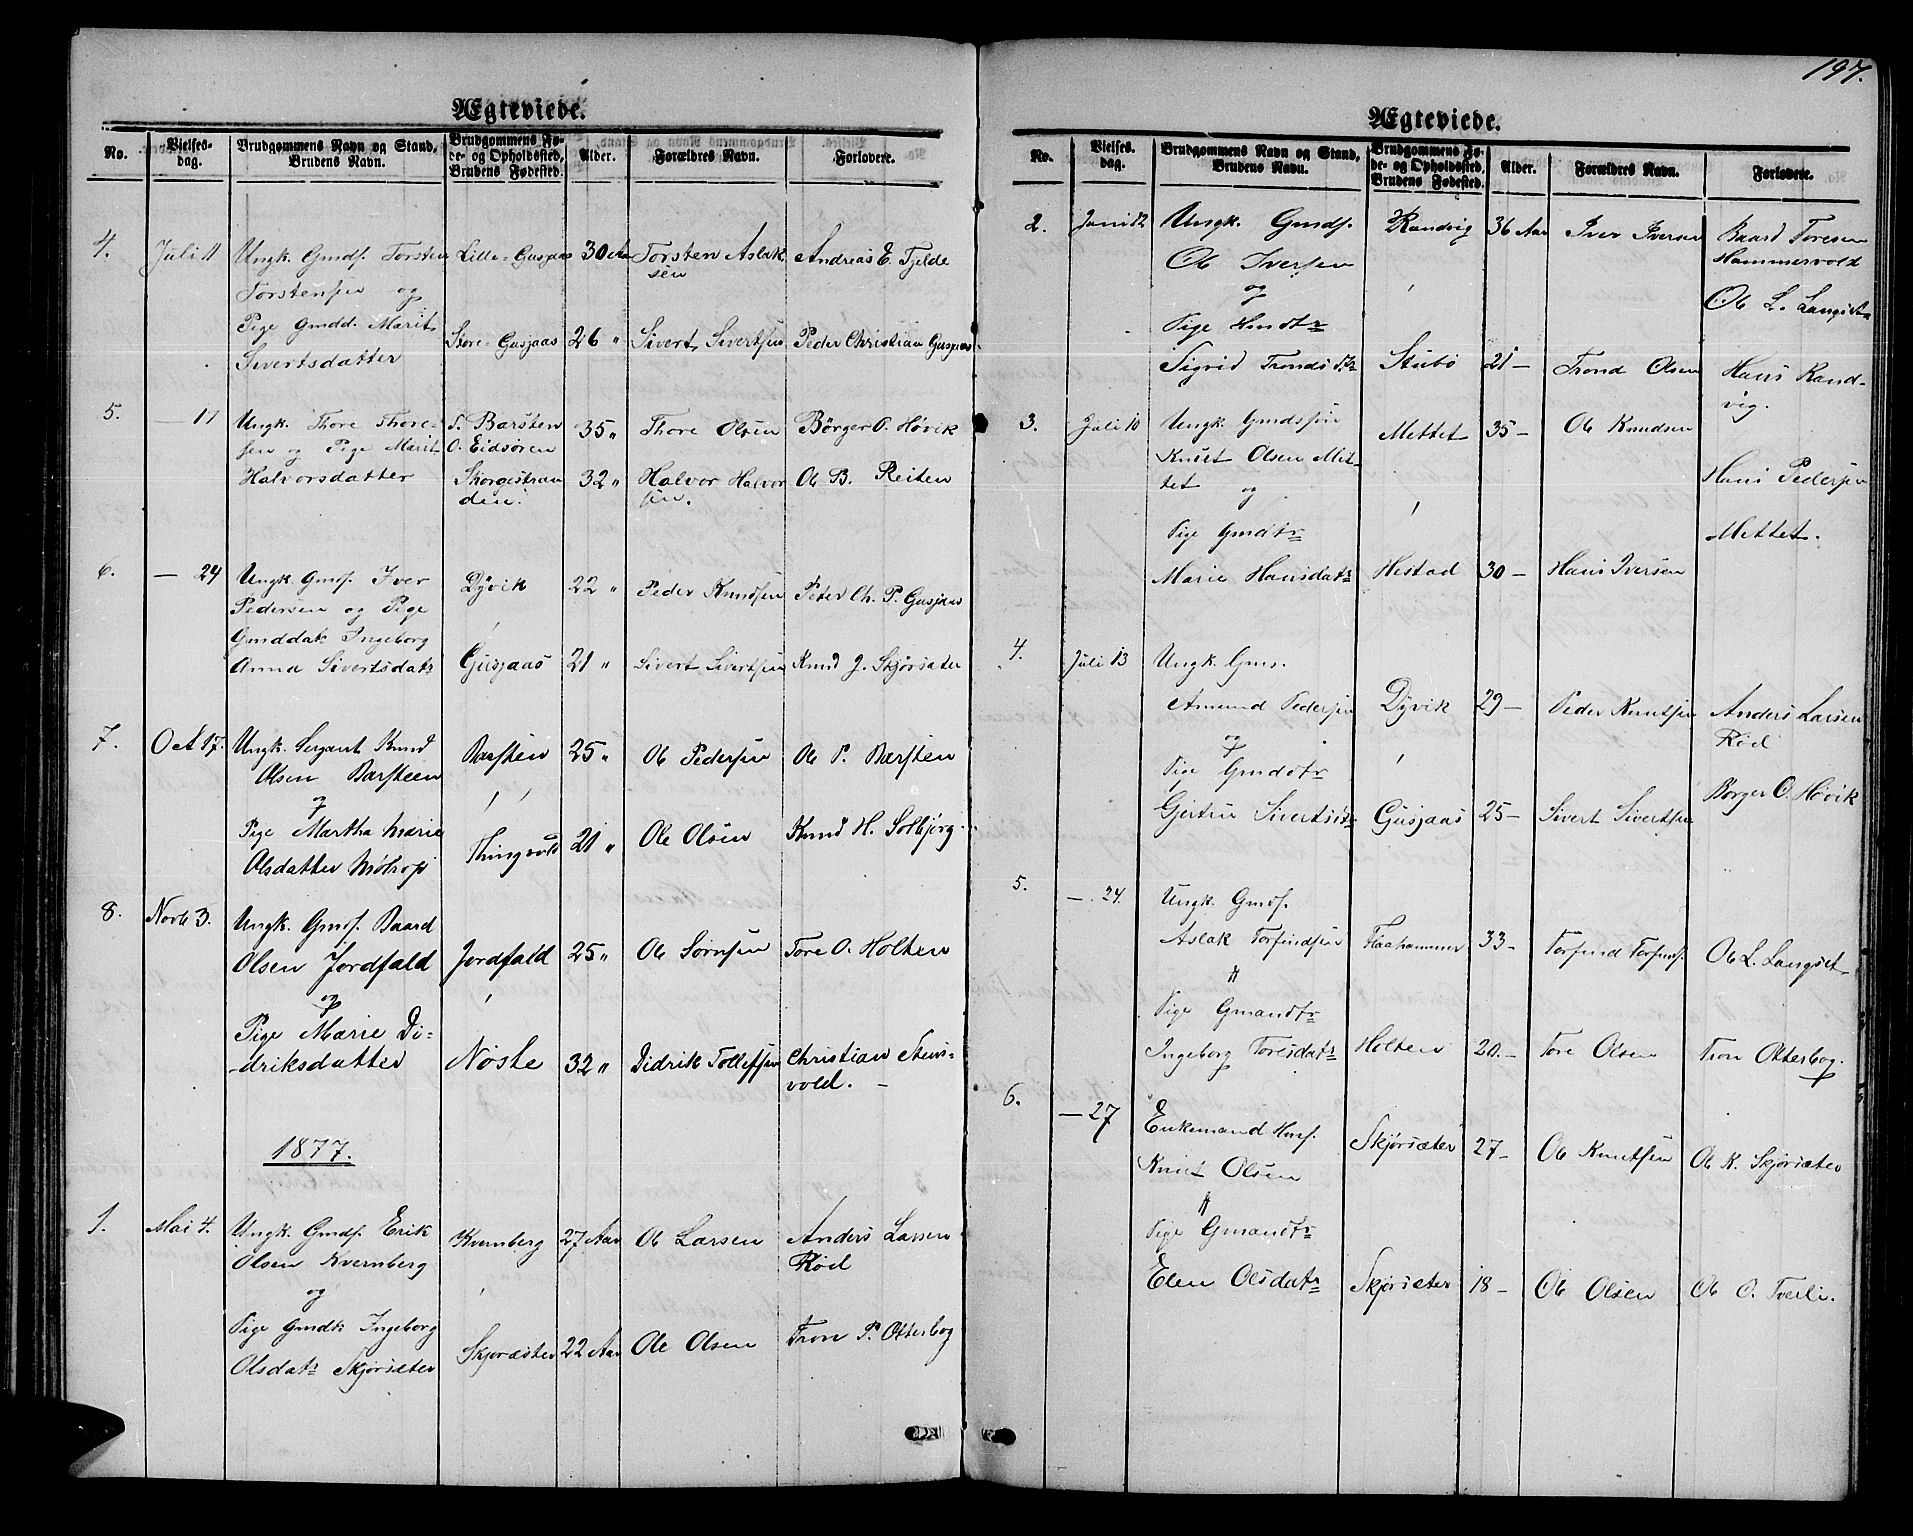 Ægteviede.
No.
Vielses-
dag.
Brudgommens Navn og Stand,
Brudens Navn.
Brudgommens Fø-
de- og Opholdssted,
Brudens Fødested.
Alder.
Forældres Navn.
Forlovere.
4. Juli 11 Ungk. Gmdf. Torsten Lille-Gusjaas 30 Aar Torsten Aslak Andreas E. Tjelde
sen
Torstensen og
Pige Gmdd. Marit Store-Gusjaas 26 " Sivert Sivertsen Peder Christian Gusjaas.
Sivertsdatter
5. — 11 Ungk. Thore Thore- F. Barsten 35 " Thore Olsen Børger O. Høvik
sen og Pige Marit O. Eidsøren
Halvorsdatter Skorgestran 32 " Halvor Halvor Ole B. Reiten
den. sen.
6. — 24 Ungk. Gmdf. Iver Dyvik 22 " Peder Knudsen Peter Ch. P. Gusjaas
Pedersen og Pige
Gmddat. Ingeborg
Anna Sivertsdatr Gusjaas 21 " Sivert Sivertsen Knud J. Skjørsæter
7. Oct 17. Ungk. Sergant Knud Barsten 25 " Ole Pedersen Ole P. Barsten
Olsen Barsteen
og
Pige Martha Marie Thingvold 21 " Ole Olsen Knud H. Solbjørg.
Olsdatter
8. Novb 3. Ungk. Gmdf. Baard
Olsen Jordfald Jordfald 25 " Ole Sørnsen Tore O. Holten
og
Pige Marie Di-
driksdatter Nøste 32 " Didrik Tollefsen Christian Stens-
vold.
1877.
1. Mai 4. Ungk. Gmdf. Erik Kvernberg 27 Aar Ole Larsen Anders Larsen
Olsen Kvernberg Rød
og
Pige Gmdt. Ingeborg Skjøræster 22 Aar Ole Olsen Tron P. Otterbog
Olsdatr Skjørsæter
197.
Ægteviede.
No.
Vielses-
dag.
Brudgommens Navn og Stand,
Brudens Navn.
Brudgommens Fø-
de- og Opholdssted,
Brudens Fødested.
Alder.
Forældres Navn.
Forlovere.
2. Juni 12 Ungk. Gmdf. Randvig 36 Aar Iver Iversen Baard Toresen
Hammervold
Ole Iversen
og Ole L. Langset
Pige Hmdtr
Sigrid Tronds Dtr Stubø 21 — Trond Olsen Hans Rand-
vig.
3. Juli 10 Ungk. Gmdssøn Mettet 35 — Ole Knudsen
Knut Olsen Met-
tet og Hans Pedersen
Pige Gmdtr Mettet.
Marie Hansdatr Hestad 30 — Hans Iversen
4. Juli 13 Ungk. Gms.
Amund Pedersen Dyvik 29 — Peder Knutsen Anders Larsen
og Rød
Pige Gmdtr
Gjertru Sivertsdtr Gusjaas 25 — Sivert Sivertsen Børger O. Høvik
5. — 24. Ungk. Gmdf.
Aslak Torfindsen Flaahammer 33 — Torfind Torfinds. Ole L. Langset
#
Pige Gmandtr
Ingeborg Toresdatr Holten 20. — Tore Olsen Tron Otterbog.
6. — 27 Enkemand Hmf. Skjørsæter 27 — Ole Knutsen Ole K. Skjørsæter
Knut Olsen
#
Pige Gmandtr
Elen Olsdatr Skjørsæter 18 — Ole Olsen Ole O. Tverli.